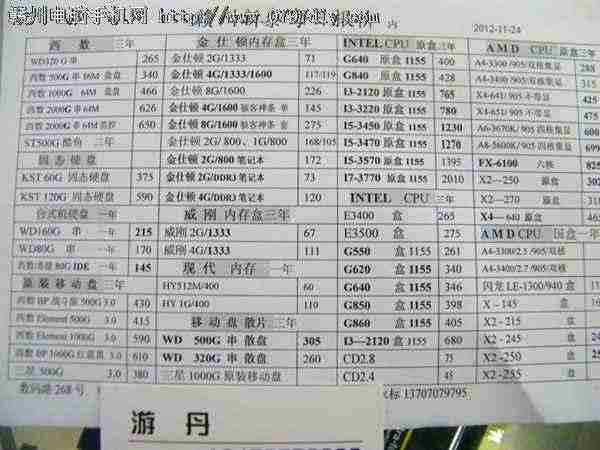 电脑手机网 http://www.
内 2012-11-24
西 数 三年
WD320 G 串 265
西数 500G 串 16M 盒盘 340
西数 1000G 64M 盒盘 466
西数 2000G 串 64M 626
西数 2000G 串 64M 650
ST500G 酷鱼 二年
固态硬盘
KST 60G 固态硬盘 375
KST 120G 固态硬盘 590
台式机硬盘 一年
WD160G 串 一年 215
WD80G 串 一年 170
80G IDE 一年 145
原装移动盘 三年
西数 BP 战斗版 500G 3.0 430
西数 Element 500G 3.0 415
西数 Element 1000G 3.0 590
西数 BP 1000G 3.0 610
三星 500G 3.0 380
金仕顿内存盒三年
金仕顿 2G/1333 71
金仕顿 4G/1333/1600 117/119
金仕顿 8G/1600 226
金仕顿 4G/1600 骇客神条 单 145
金仕顿 8G/1600 骇客神条 套 275
金仕顿 2G/ 800、1G/800 168/105
金仕顿 2G/800 笔记本 172
金仕顿 2G/DDR3 笔记本 73
金仕顿 4G/DDR3 笔记本 120
威刚内存盒三年
威刚 2G/1333 67
威刚 4G/1333 111
现代 内存 一年
HY512M/400 60
HY 1G/400 110
移动盘散片 三年
WD 500G 串 散盘 305
WD 320G 串 散盘 260
三星 1000G 原装移动盘
INTEL CPU 原盒三年
G640 原盒 1155 400
G840 原盒 1155 428
I3-2120 原盒 1155 765
I3-3220 原盒 1155 780
I5-3450 原盒 1155 1230
I5-3470 原盒 1155 1270
I5-3570 原盒 1155 1395
I7-3770 原盒 1155 2010
INTEL CPU 三年
E3400 盒 265
E3500 盒 275
G550 盒 1155 261
G620 盒 1155 340
G640 盒 1155 346
G850 盒 1155 398
G860 盒 1155 405
I3—2120 盒 1155 680
CD2.8 75
CD2.4 45
AMD CPU 原盒三年
A4-3300 /905/双核集显 288
A4-3400 /905/双核集显 315
X4-631/ 905 不带显 425
X4-641/ 905 不带显 475
A6-3670K/ 905 四核集显
A8-5600K/ 905 四核集显 699
FX-6100 六核 825
X2—250 原盒 302
X2—270 原盒
X4—640 原盒 465
AMD CPU 国盒一年
A4-3300/2.5 /905/双核
A4-3400/2.7 /905/双核
闪龙 LE-1300/940 盒
X－145 盒
X2 -215 盒
X2 -245 盒
X2 -250 盒
X2 -255 盒
数码路 268 号
标 13707079795
游 丹